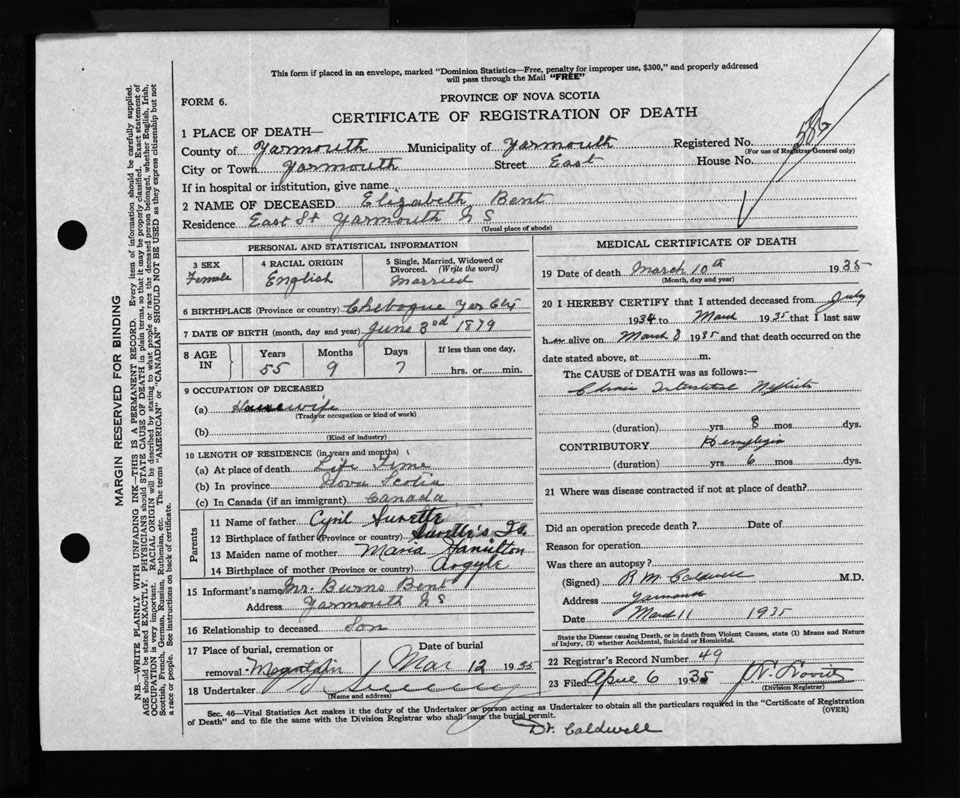 This form if placed in an envelope, marked "Dominion Statistics—Free, penalty for improper use, $300," and properly addressed
will pass through the Mail "FREE"
FORM 6.
PROVINCE OF NOVA SCOTIA
CERTIFICATE OF REGISTRATION OF DEATH
1 PLACE OF DEATH—
County of Yarmouth Municipality of Yarmouth Registered No. 556
(For use of Registrar General only)
City or Town Yarmouth Street East House No.
If in hospital or institution, give name
2 NAME OF DECEASED Elizabeth Bent
Residence East St Yarmouth N S
(Usual place of abode)
PERSONAL AND STATISTICAL INFORMATION
3 SEX
Female
4 RACIAL ORIGIN
English
5 Single, Married, Widowed or
Divorced. (Write the word)
Married
6 BIRTHPLACE (Province or country) Chebogue Yar
7 DATE OF BIRTH (month, day and year) June 3rd 1879
8 AGE
IN
Years
55
Months
9
Days
7
If less than one day,
hrs. or min.
9 OCCUPATION OF DECEASED
(a) Housewife
(Trade or occupation or kind of work)
(b)
(Kind of industry)
10 LENGTH OF RESIDENCE (in years and months)
(a) At place of death Life Time
(b) In province Nova Scotia
(c) In Canada (if an immigrant) Canada
Parents
11 Name of father Cyril Surette
12 Birthplace of father (Province or country) Surette's Is.
13 Maiden name of mother Maria Hamilton
14 Birthplace of mother (Province or country) Argyle
15 Informant's name Mr. Burns Bent
Address Yarmouth N S
16 Relationship to deceased Son
17 Place of burial, cremation or
removal
Date of burial
Mar 12 1935
18 Undertaker
(Name and address)
MEDICAL CERTIFICATE OF DEATH
19 Date of death March 10th 1935
(Month, day and year)
20 I HEREBY CERTIFY that I attended deceased from July
1934 to March 1935 that I last saw
her alive on March 8 1935 and that death occurred on the
date stated above, at m.
The CAUSE of DEATH was as follows:—
Chronic Interstitial Nephritis
(duration) yrs 8 mos dys.
CONTRIBUTORY Hemiplegia
(duration) yrs 6 mos dys.
21 Where was disease contracted if not at place of death?
Did an operation precede death? Date of
Reason for operation
Was there an autopsy?
(Signed) R M Caldwell M.D.
Address Yarmouth
Date March 11 1935
State the Disease causing Death, or in death from Violent Causes, state (1) Means and Nature
of Injury, and (2) whether Accidental, Suicidal or Homicidal.
22 Registrar's Record Number 49
23 Filed April 6 1935
(Division Registrar)
Sec. 46—Vital Statistics Act makes it the duty of the Undertaker or person acting as Undertaker to obtain all the particulars required in the "Certificate of Registration
of Death" and to file the same with the Division Registrar who shall issue the burial permit.
(OVER)
Dr. Caldwell
MARGIN RESERVED FOR BINDING
N.B.—WRITE PLAINLY WITH UNFADING INK—THIS IS A PERMANENT RECORD. Every item of information should be carefully supplied.
AGE should be stated EXACTLY. PHYSICIANS should STATE CAUSE OF DEATH in plain terms, so that it may be properly classified. Exact statement of
OCCUPATION is very important. RACIAL ORIGIN will be described by stating to what people or race the deceased person belonged, whether English, Irish,
Scottish, French, German, Russian, Ruthenian, etc. The terms "AMERICAN" or "CANADIAN" SHOULD NOT BE USED as they express citizenship but not
a race or people. See instructions on back of certificate.